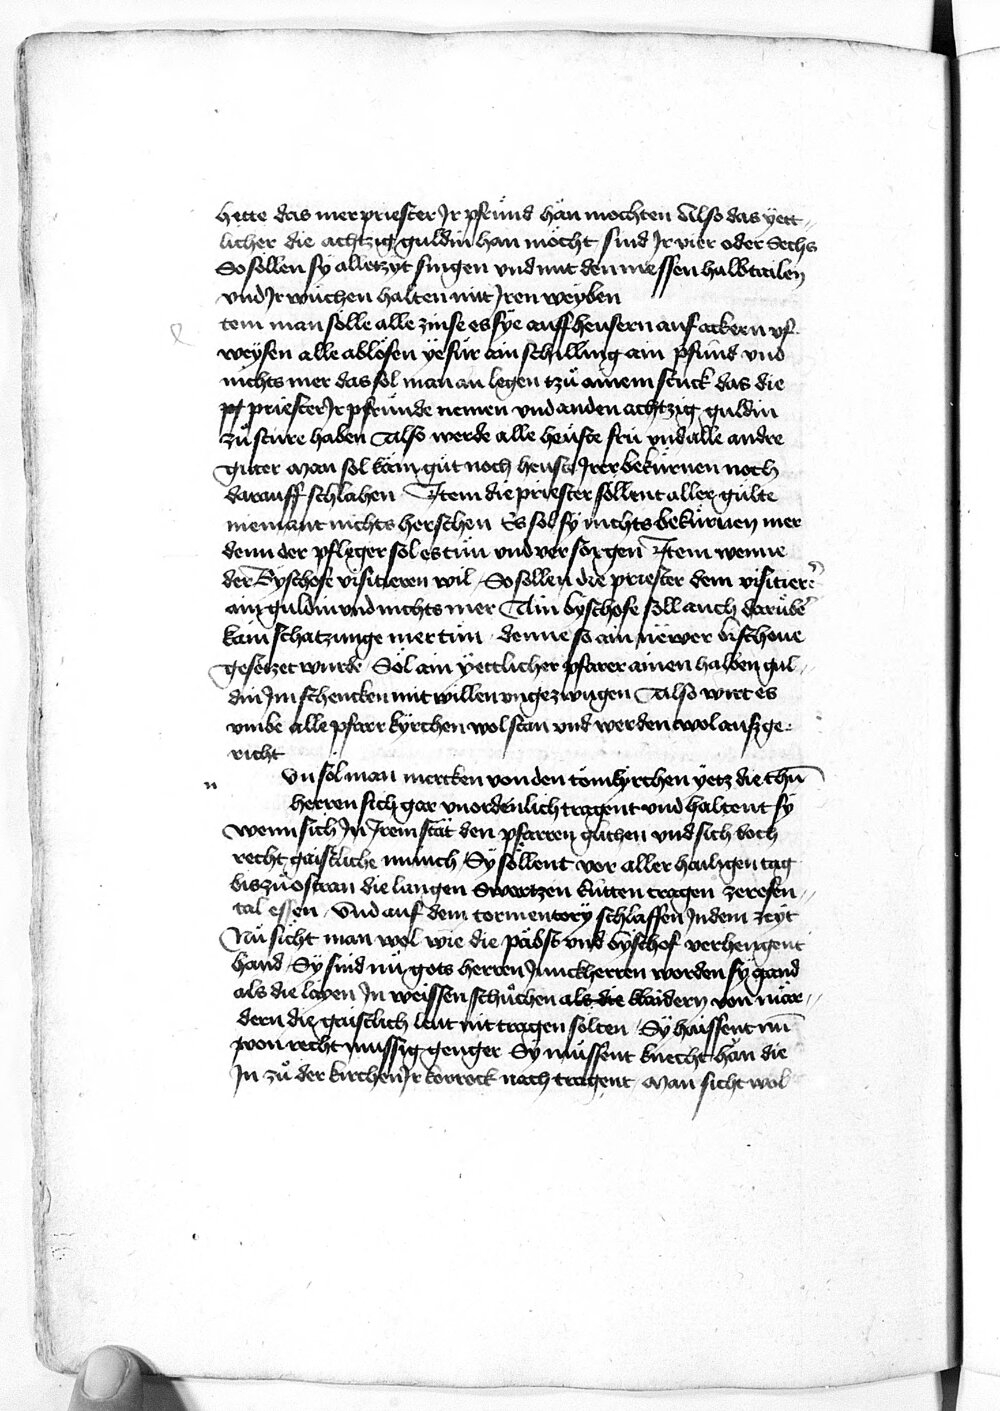 hette das mer priester Ir pfründ hän möchten Also das yett-
licher die achtzig guldin han möcht sind Ir vier oder Sechs
So sollen sy alletzyt singen und mit den messen halb tailen
und Ir wuchen halten mit Iren weyben
tem man sölle alle zinse es sye auff heusern auf ackern uf
weysen alle ablösen ye für ain schilling ain pfund und
nichts mer das sol man an legen tzů ainem stuck das die
priester Ir pfründe nemen und an den achtzig guldin
zů sture haben Also werde alle heuser frü und alle andre
guter man sol kain gut noch heuser Irer bekürnen noch
darauff schlahen Item die priester söllent aller gülte
niemant nichts herschen Es sol sy nichts bekürnen mer
denn der pfleger sol es tün und versorgen Item wenne
der Byschofe visitieren wil So sollen die priester dem visitierer
ain guldin und nichts mer Ain byschofe soll auch darüber
kain schatzunge mer tün denne so ain newer bischoue
gesetzet wurde Söl ain yettlicher pfarer ainen halben gul-
din Im schencken mit willen ungezwugen Also wirt es
umbe alle pfarr kyrchen wol stan und werdent wol aufzge-
richt
n
Un söl man mercken von den tömkyrchen yetz die thum
herren sich gar unordenlich tragent und haltent sy
wenn sich In Irem stät den pfarren glichen und sich doch
recht gaistliche münch Sy söllent vor aller hailigen tag
bis zů ostran die langen swartzen kutten tragen ze refen-
tal essen Und auf dem tormentory schlaffen In dem zeyt
Nů sicht man wol wie die päbst und byschof verhengent
hand Sy sind nü gots herren Junckherren worden sy gand
als die layen In weissen schůchen als die klaidern von mär-
dern die gaistlich leut nit tragen solten Sy haissent nü
von recht müssig genger Sy müssent knecht hän die
In zů der kirchen Ir korrock nach tragent man sicht wol